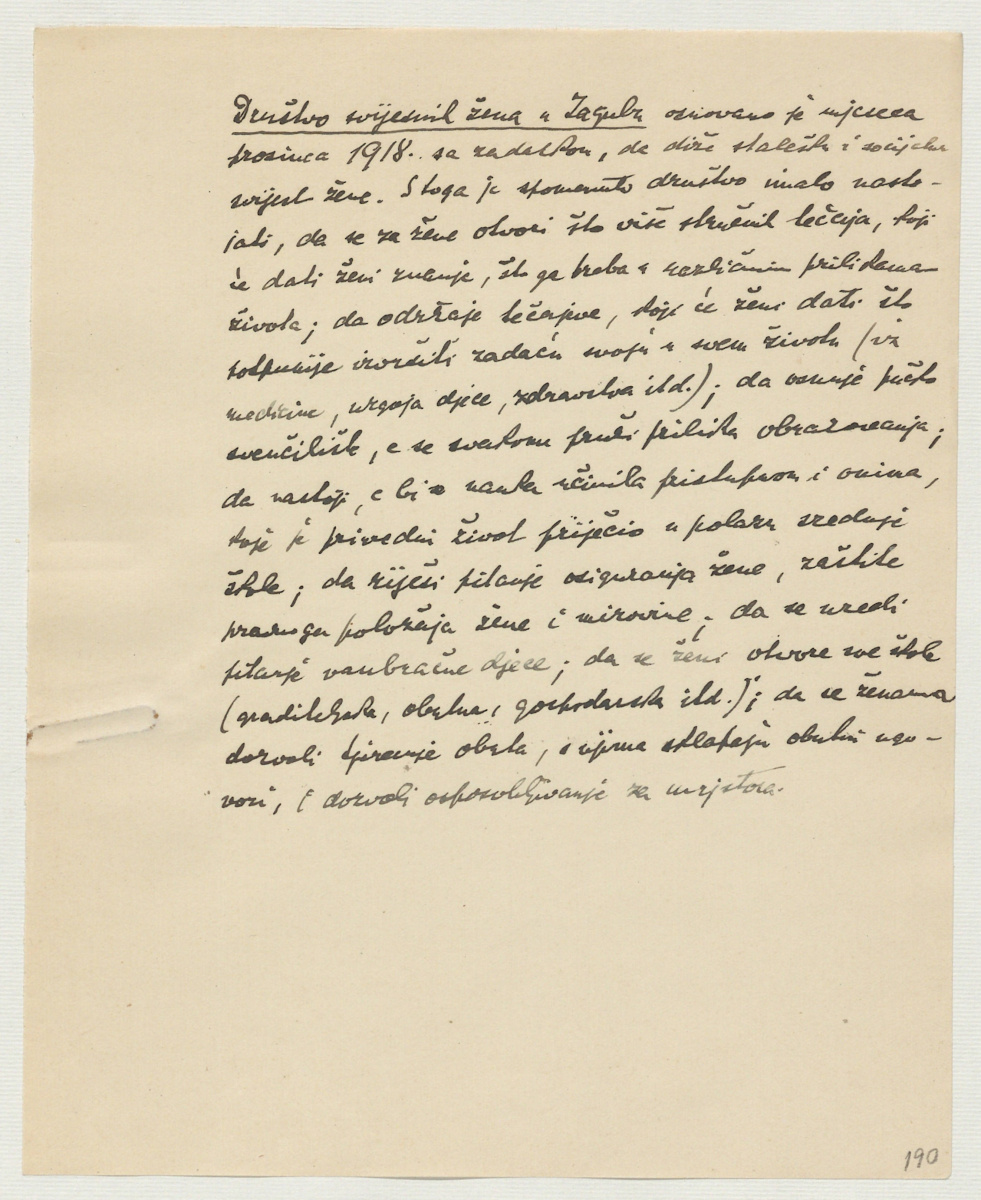 Društvo svijesnih žena u Zagrebu osnovano je mjeseca
prosinca 1918. sa zadatkom, da diže stališku i socijalnu
svijest žene. Stoga je spomenuto društvo imalo nasto-
jati, da se za žene otvori što više stručnih tečaja, koji
će dati ženi znanje, što ga treba u različnim prilikama
života; da održaje tečajeve, koji će ženi dati što
potpunije izvršiti zadaću svoju u svem životu (iz
medicine, uzgoja djece, zdravstva itd.); da osnuje pučko
sveučilište, e se svakomu pruži prilika obrazovanja;
da nastoji, e bi nauka učinila pristupnom i onima,
koje je privredni život priječio u polazu srednje
škole; da riješi pitanje osiguranja žene, zaštite
pravnoga položaja žene i mirovine; da se uredi
pitanje vanbračne djece; da se ženi otvore sve škole
(graditeljska, obrtna, gospodarska itd.); da se ženama
dozvoli tjeranje obrta, s njima sklapaju obrtni ugo-
vori, i dozvoli osposobljivanje za
190